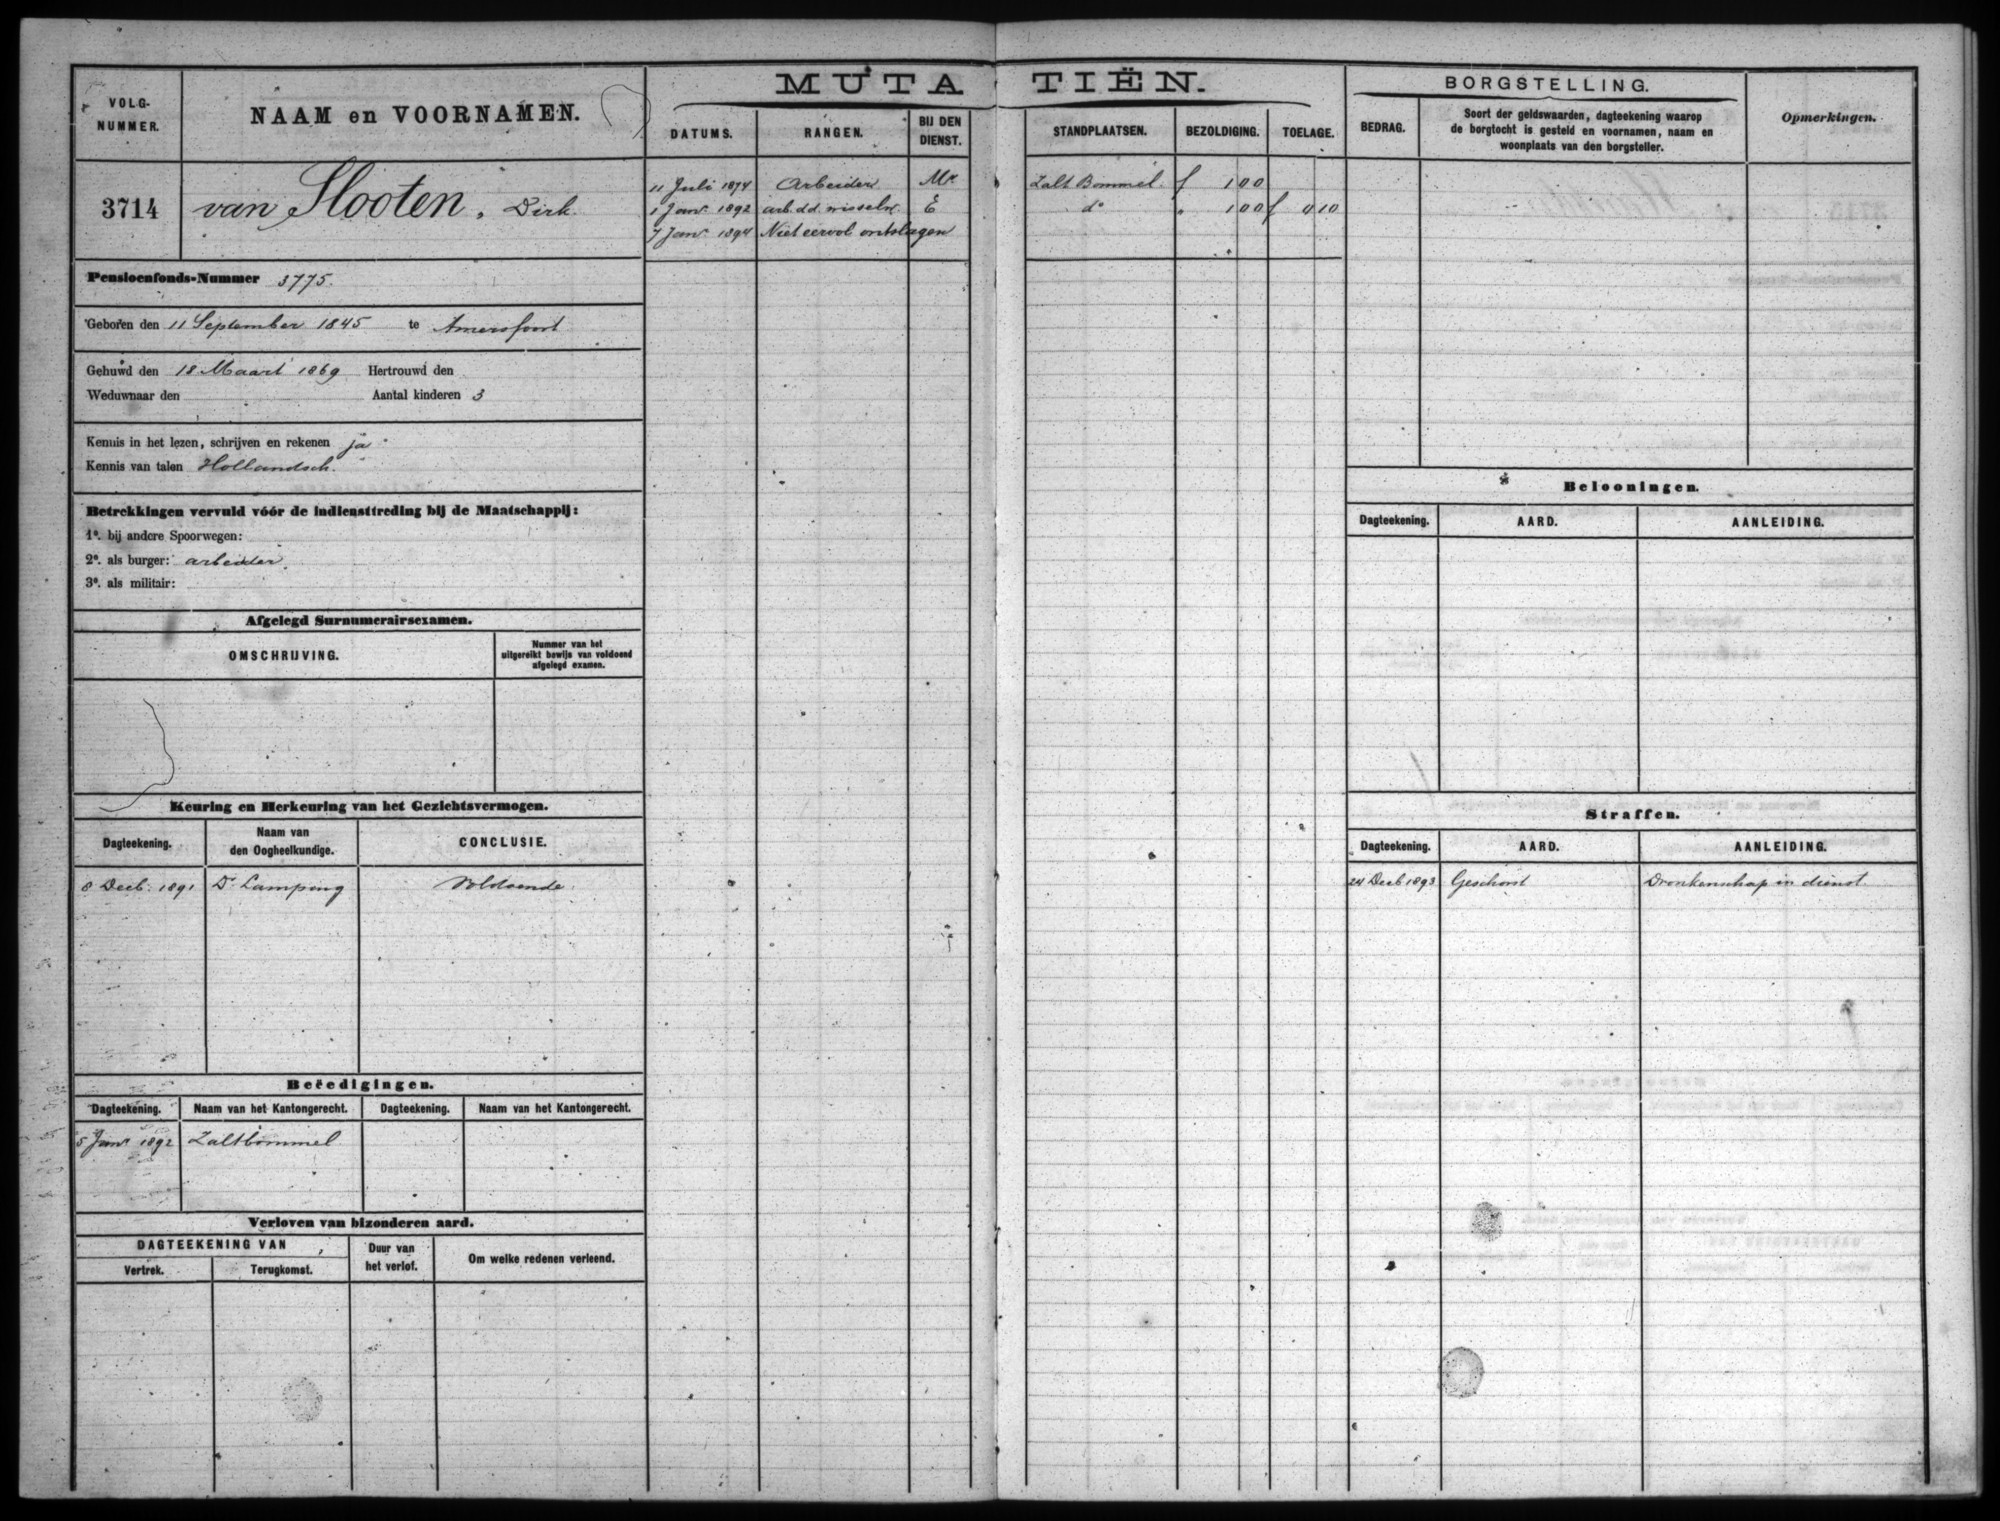 VOLG-
NUMMER.
NAAM en VOORNAMEN.
3714
van Slooten, Dirk.
Pensioenfonds-Nummer 3775.
Geboren den 11 September 1845 te Amersfoort
Gehuwd den 18 Maart 1869 Hertrouwd den
Weduwnaar den Aantal kinderen 3
Kennis in het lezen, schrijven en rekenen ja
Kennis van talen Hollandsch.
Betrekkingen vervuld vóór de indiensttreding bij de Maatschappij:
1e. bij andere Spoorwegen:
2e. als burger: arbeider.
3e. als militair:
Afgelegd Surnumerairsexamen.
OMSCHRIJVING.
Nummer van het
uitgereikt bewijs van voldoend
afgelegd examen.
Keuring en Herkeuring van het Gezichtsvermogen.
Dagteekening.
Naam van
den Oogheelkundige.
CONCLUSIE.
8 Decb. 1891 Dr Lamping Voldoende
Beëedigingen.
Dagteekening. Naam van het Kantongerecht. Dagteekening. Naam van het Kantongerecht.
5 Janr 1892 Zaltbommel
Verloven van bizonderen aard.
DAGTEEKENING VAN
Vertrek. Terugkomst.
Duur van
het verlof.
Om welke redenen verleend.
MUTATIËN.
DATUMS. RANGEN.
BIJ DEN
DIENST.
STANDPLAATSEN. BEZOLDIGING. TOELAGE.
11 Juli 1874 Arbeider Zalt Bommel. f 100
1 Janr 1892 arb. d.d. wisselw. E do " 100 f 0 10
7 Janr 1894 Niet eervol ontslagen
BORGSTELLING.
BEDRAG.
Soort der geldswaarden, dagteekening waarop
de borgtocht is gesteld en voornamen, naam en
woonplaats van den borgsteller.
Opmerkingen.
Belooningen.
Dagteekening. AARD. AANLEIDING.
Straffen.
Dagteekening. AARD. AANLEIDING.
24 Decb 1893 Geschorst Dronkenschap in dienst.